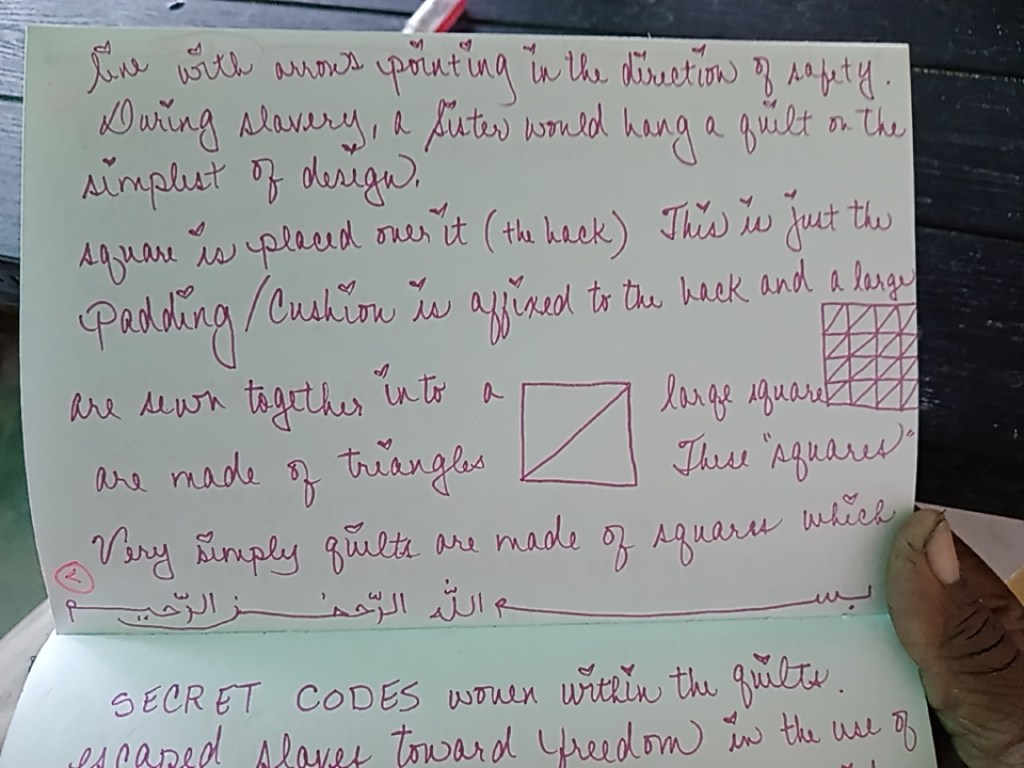 line with arrows pointing in the direction of safety.
During slavery, a Sister would hang a quilt on the
simplest of design.
square is placed over it (the back) This is just the
Padding/Cushion is affixed to the back and a large
are sewn together into a large square
are made of triangles These "squares"
Very simply quilts are made of squares which
بسم اللّه الرّحمن الرّحيم
SECRET CODES woven within the quilts.
escaped slaves toward (freedom) in the use of